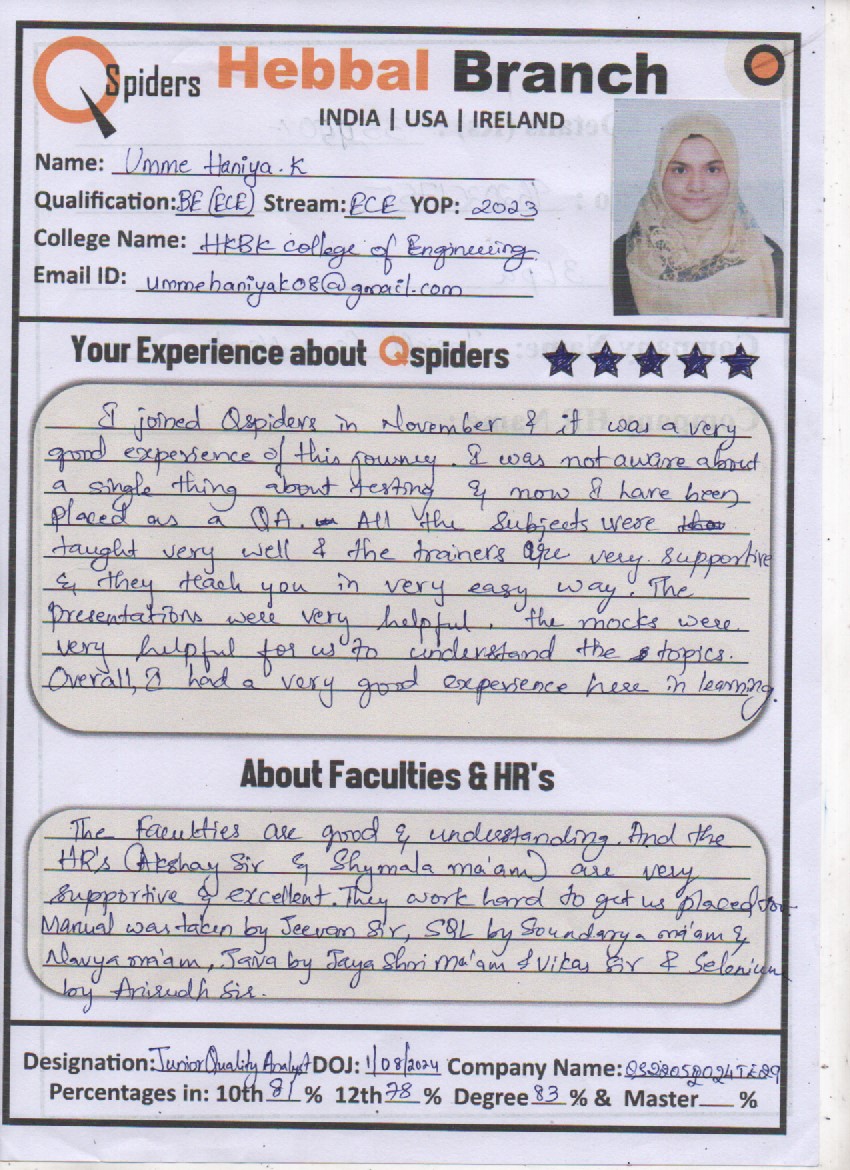 Qspiders Hebbal Branch
INDIA | USA | IRELAND
Name: Umme Haniya.K
Qualification: BE (ECE) Stream: ECE YOP: 2023
College Name: HKBK college of Engineering
Email ID: ummehaniyak08@gmail.com
Your Experience about Qspiders
I joined Qspiders in November & it was a very
good experience of this journey. I was not aware about
a single thing about testing & now I have been
placed as a QA. All the subjects were
taught very well & the trainers are very supportive
& they teach you in very easy way. The
presentations were very helpful. The mocks were
very helpful for us to understand the topics.
Overall, I had a very good experience here in learning.
About Faculties & HR's
The Faculties are good & understanding. And the
HR's (Akshay Sir & Shymala ma'am) are very
supportive & excellent. They work hard to get us placed
Manual was taken by Jeevan Sir, SQL by Soundarya ma'am &
Navya ma'am, Java by Jaya Shri Ma'am & Vikas Sir & Selenium
by Anirudh Sir.
Designation: Junior Quality Analyst DOJ: 1/08/2024 Company Name:
Percentages in: 10th 81 % 12th 78 % Degree 83 % & Master %